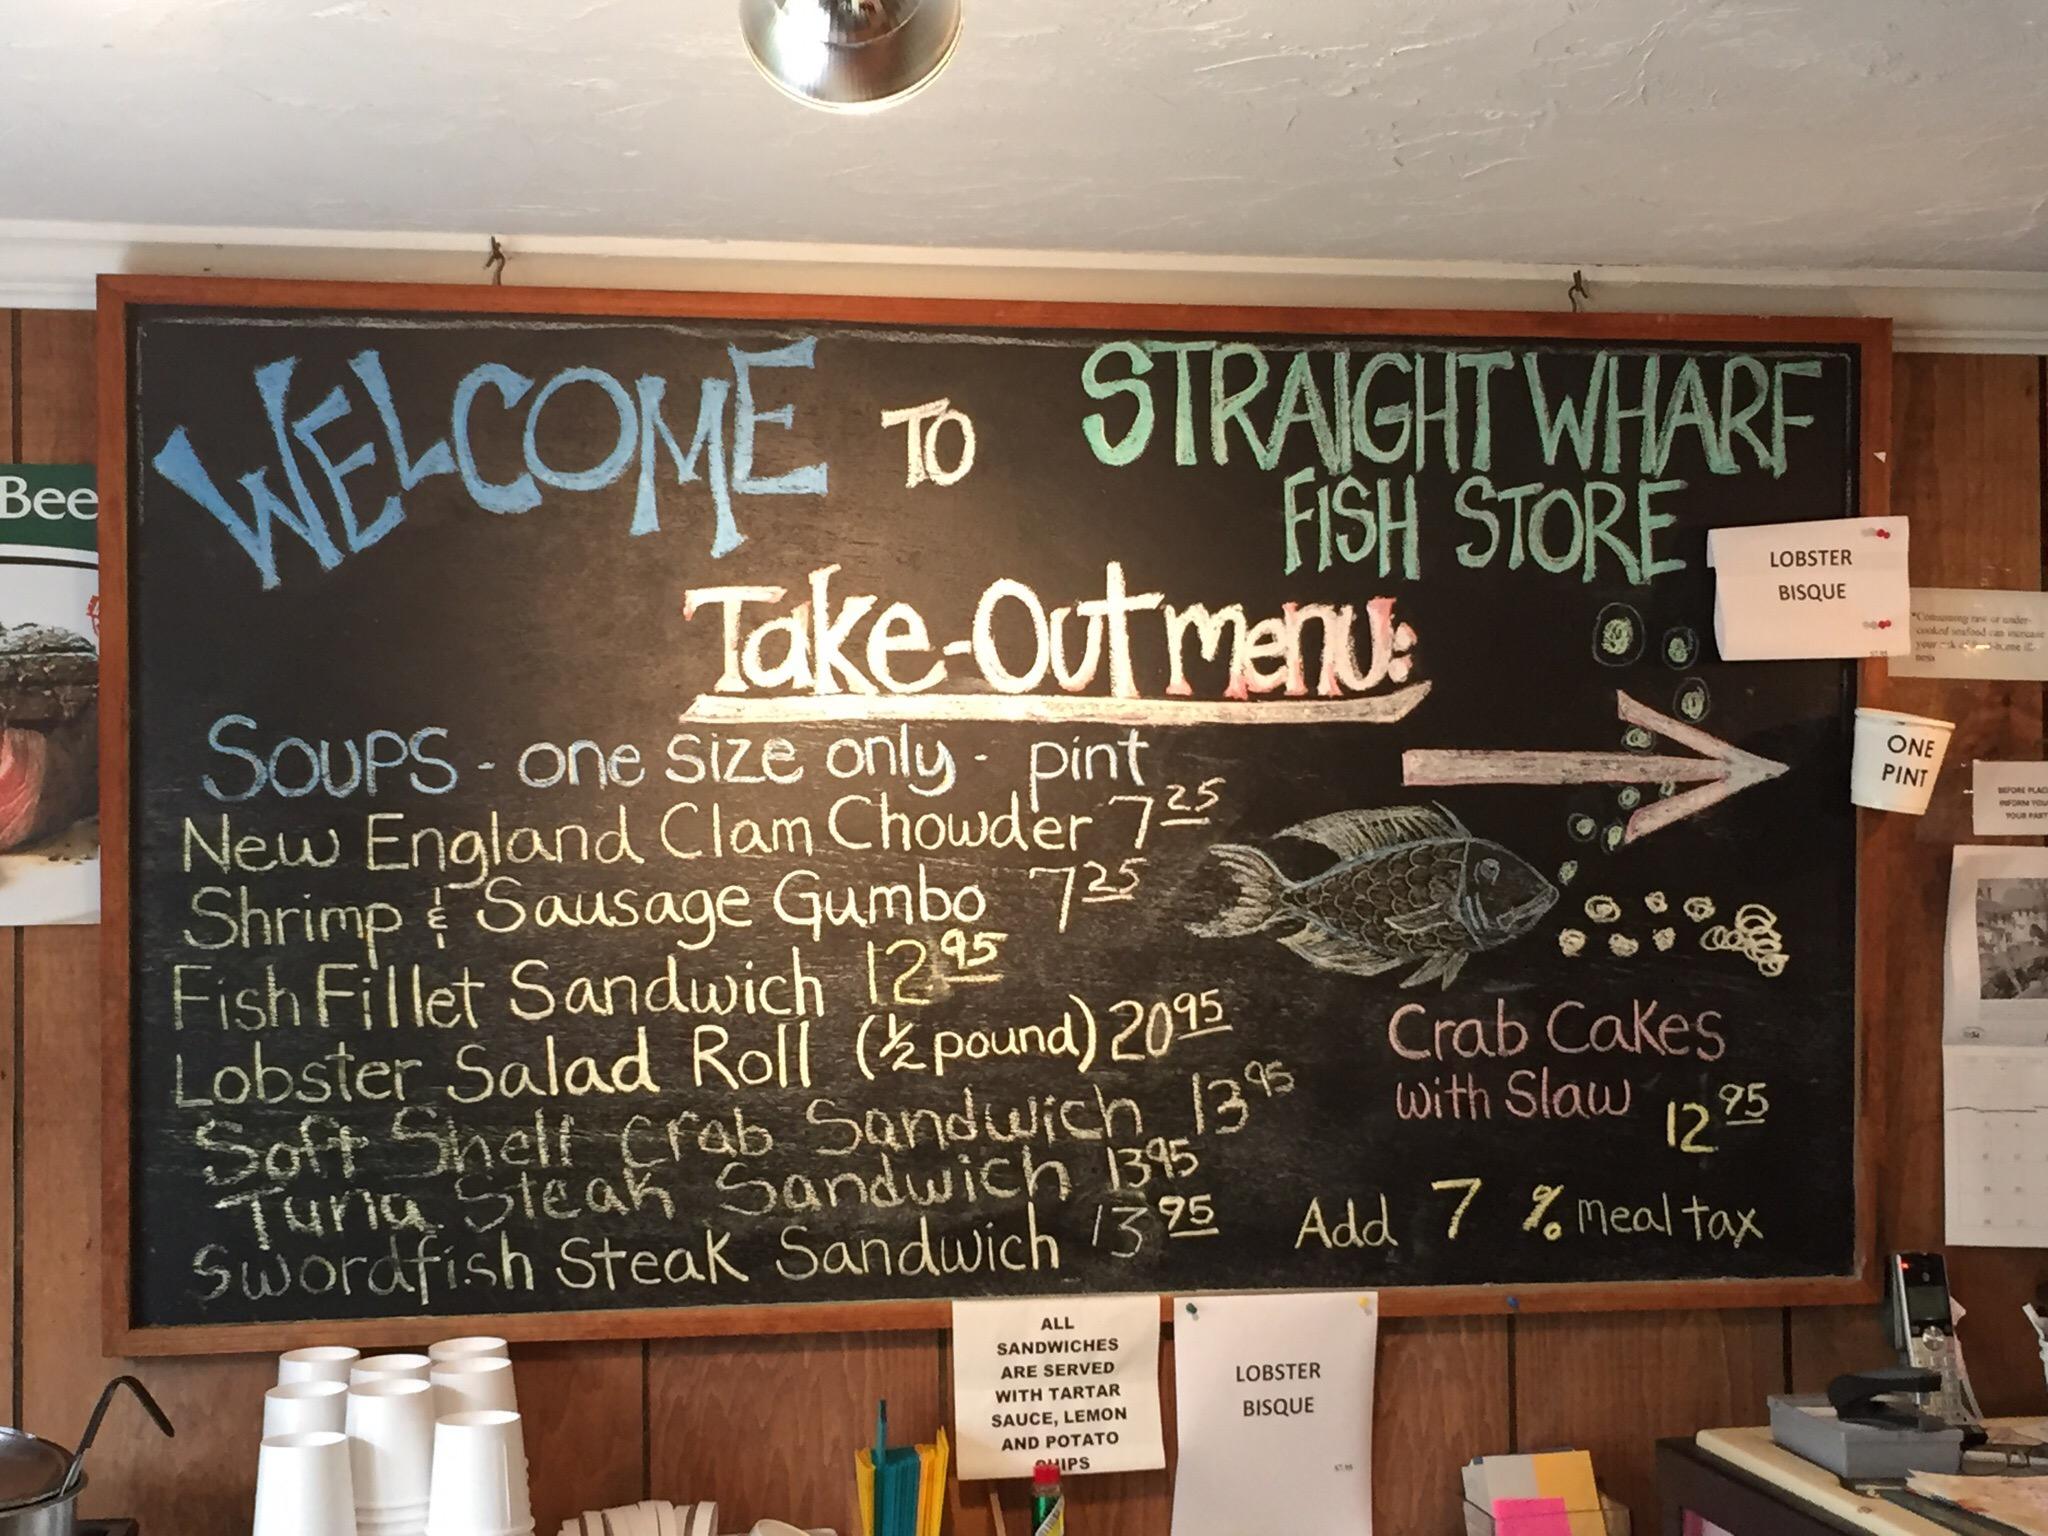 WELCOME TO STRAIGHT WHARF
FISH STORE
Take-Out menu:
SOUPS - one size only - pint
New England Clam Chowder 7 25
Shrimp & Sausage Gumbo 7 25
Fish Fillet Sandwich 12 95
Lobster Salad Roll (½ pound) 20 95
Soft Shell Crab Sandwich 13 95
Tuna Steak Sandwich 13 95
Swordfish Steak Sandwich 13 95
Crab Cakes
with Slaw 12 95
Add 7 % meal tax
LOBSTER
BISQUE
$7.95
*Consuming raw or under-
cooked seafood can increase
your risk of
ness
ONE
PINT
BEFORE PLAC
INFORM YOU
YOUR PART
Bee
ALL
SANDWICHES
ARE SERVED
WITH TARTAR
SAUCE, LEMON
AND POTATO
CHIPS
LOBSTER
BISQUE
$7.95